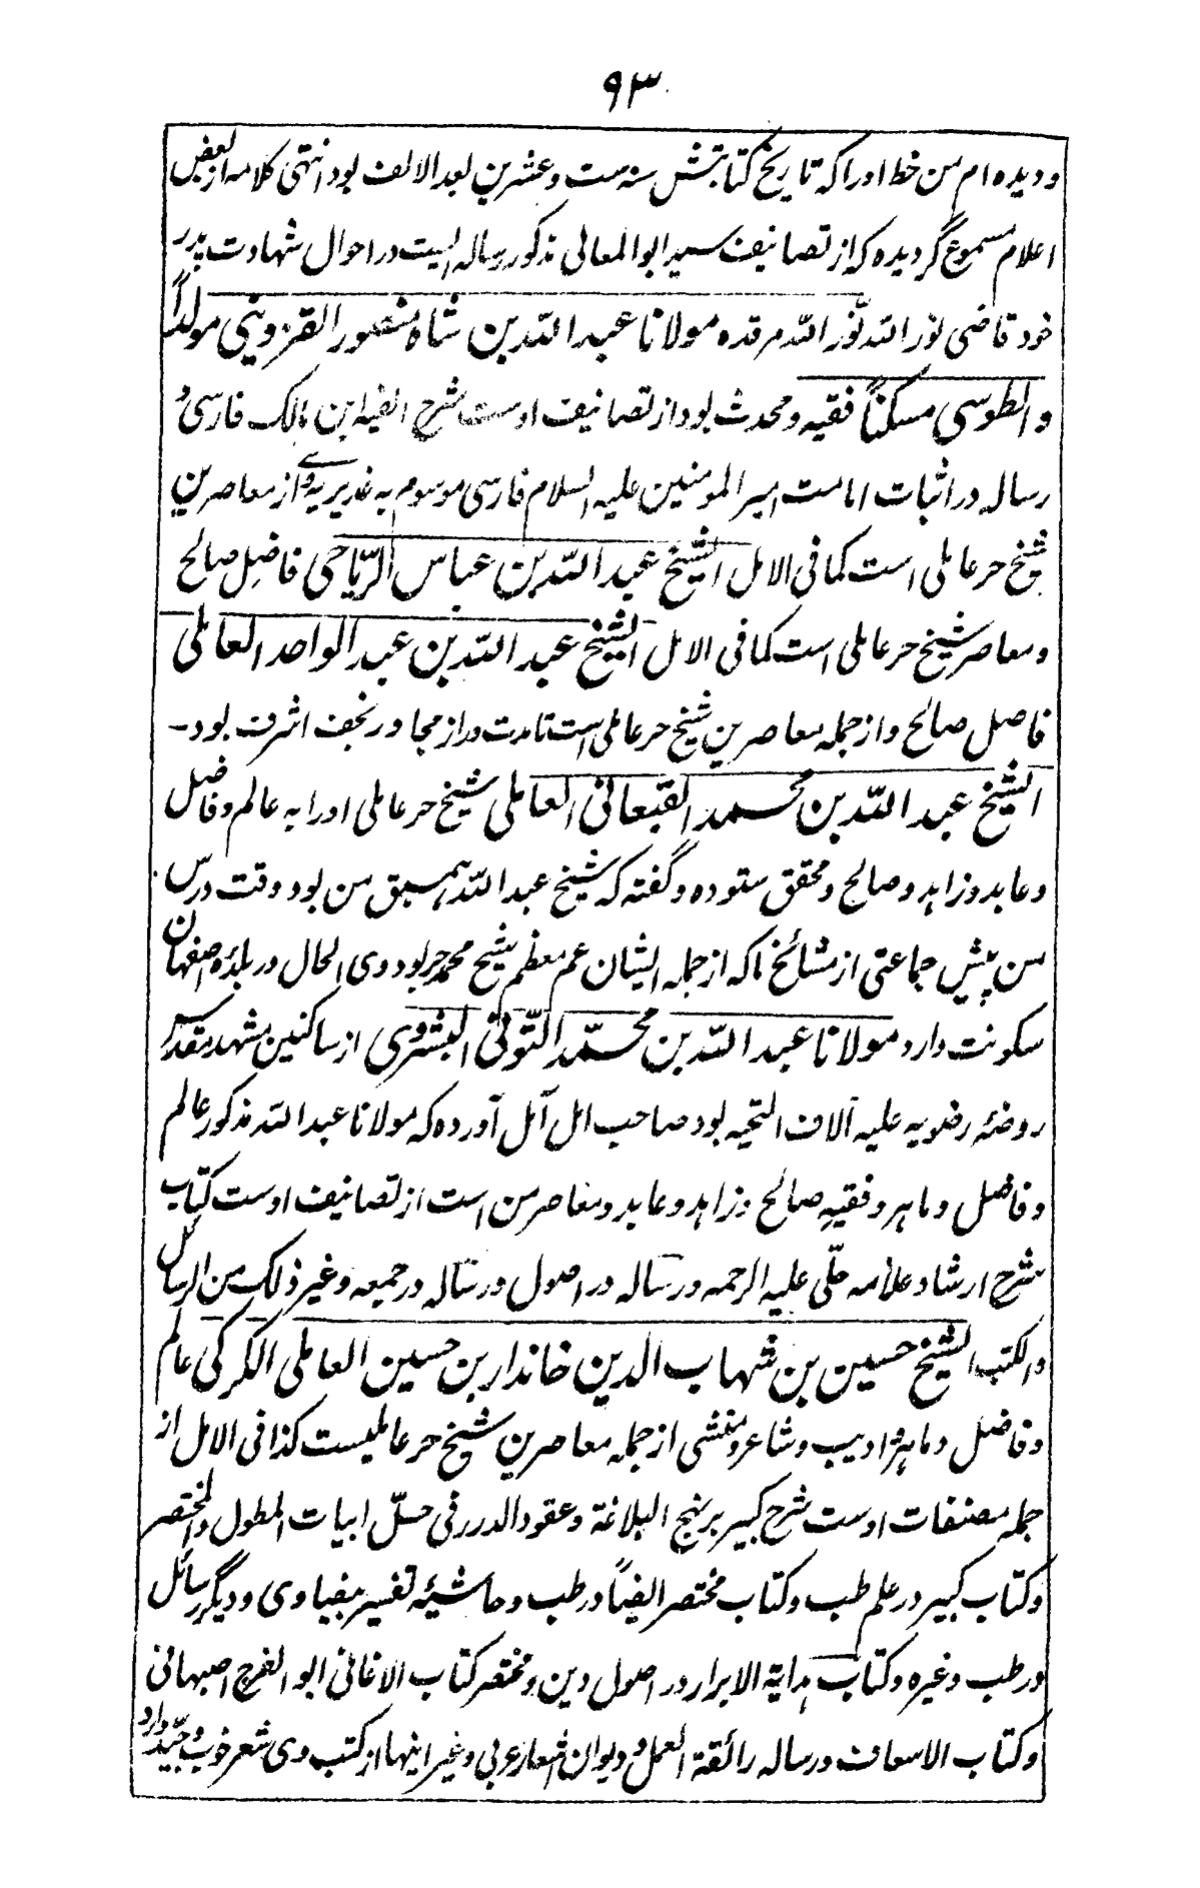 ۹۳
و دیده ام من خط او را که تاریخ کتابتش سنه ست و عشرین بعد الالف بود انتهی کلامه از بعض
اعلام مسموع گردیده که از تصانیف سید ابوالمعالی مذکور رساله ایست در احوال شهادت پدر
خود قاضی نور الله نوّر الله مرقده مولانا عبد الله بن شاه منصور القزوینی مولداً
و الطوسی مسکناً فقیه و محدث بود از تصانیف اوست شرح الفیه ابن مالک فارسی و
رساله در اثبات امامت امیر المومنین علیه السلام فارسی موسوم به غدیریه وے از معاصرین
شیخ حر عاملی است کما فی الامل الشیخ عبد الله بن عباس الریّاحی فاضل صالح
و معاصر شیخ حر عاملی است کما فی الامل الشیخ عبد الله بن عبد الواحد العاملی
فاضل صالح و از جمله معاصرین شیخ حر عاملی است تا مدت دراز مجاور نجف اشرف بود-
الشیخ عبد الله بن محمد القبعانی العاملی شیخ حر عاملی او را به عالم و فاضل
و عابد و زاهد و صالح و محقق ستوده و گفته که شیخ عبد الله همسبق من بود وقت درس
من پیش جماعتی از مشائخ ما که از جمله ایشان عم معظم شیخ محمد حر بود وی الحال در بلدهٔ اصفهان
سکونت دارد مولانا عبد الله بن محمّد التّونی البشروی از ساکنین مشهد مقدس
روضهٔ رضویه علیه آلاف التحیه بود صاحب امل آمل آورده که مولانا عبد الله مذکور عالم
و فاضل و ماهر و فقیه صالح و زاهد و عابد و معاصر من است از تصانیف اوست کتاب
شرح ارشاد علامه حلّی علیه الرحمه و رساله در اصول و رساله در جمعه و غیر ذلک من الرسائل
و الکتب الشیخ حسین بن شهاب الدین خاندار بن حسین العاملی الکرکی عالم
و فاضل و ماهر و ادیب و شاعر و منشی از جمله معاصرین شیخ حر عاملیست کذا فی الامل از
جمله مصنفات اوست شرح کبیر بر نهج البلاغة و عقود الدرر فی حلّ ابیات المطول و المختصر
و کتاب کبیر در علم طب و کتاب مختصر ایضاً در طب و حاشیهٔ تفسیر بیضاوی و دیگر رسائل
در طب و غیره و کتاب هدایة الابرار در اصول دین و مختصر کتاب الاغانی ابو الفرج اصبهانی
و کتاب الاسعاف و رساله رائقة العمل و دیوان اشعار عربی و غیر اینها از کتب وی شعر خوب و جیّد دارد